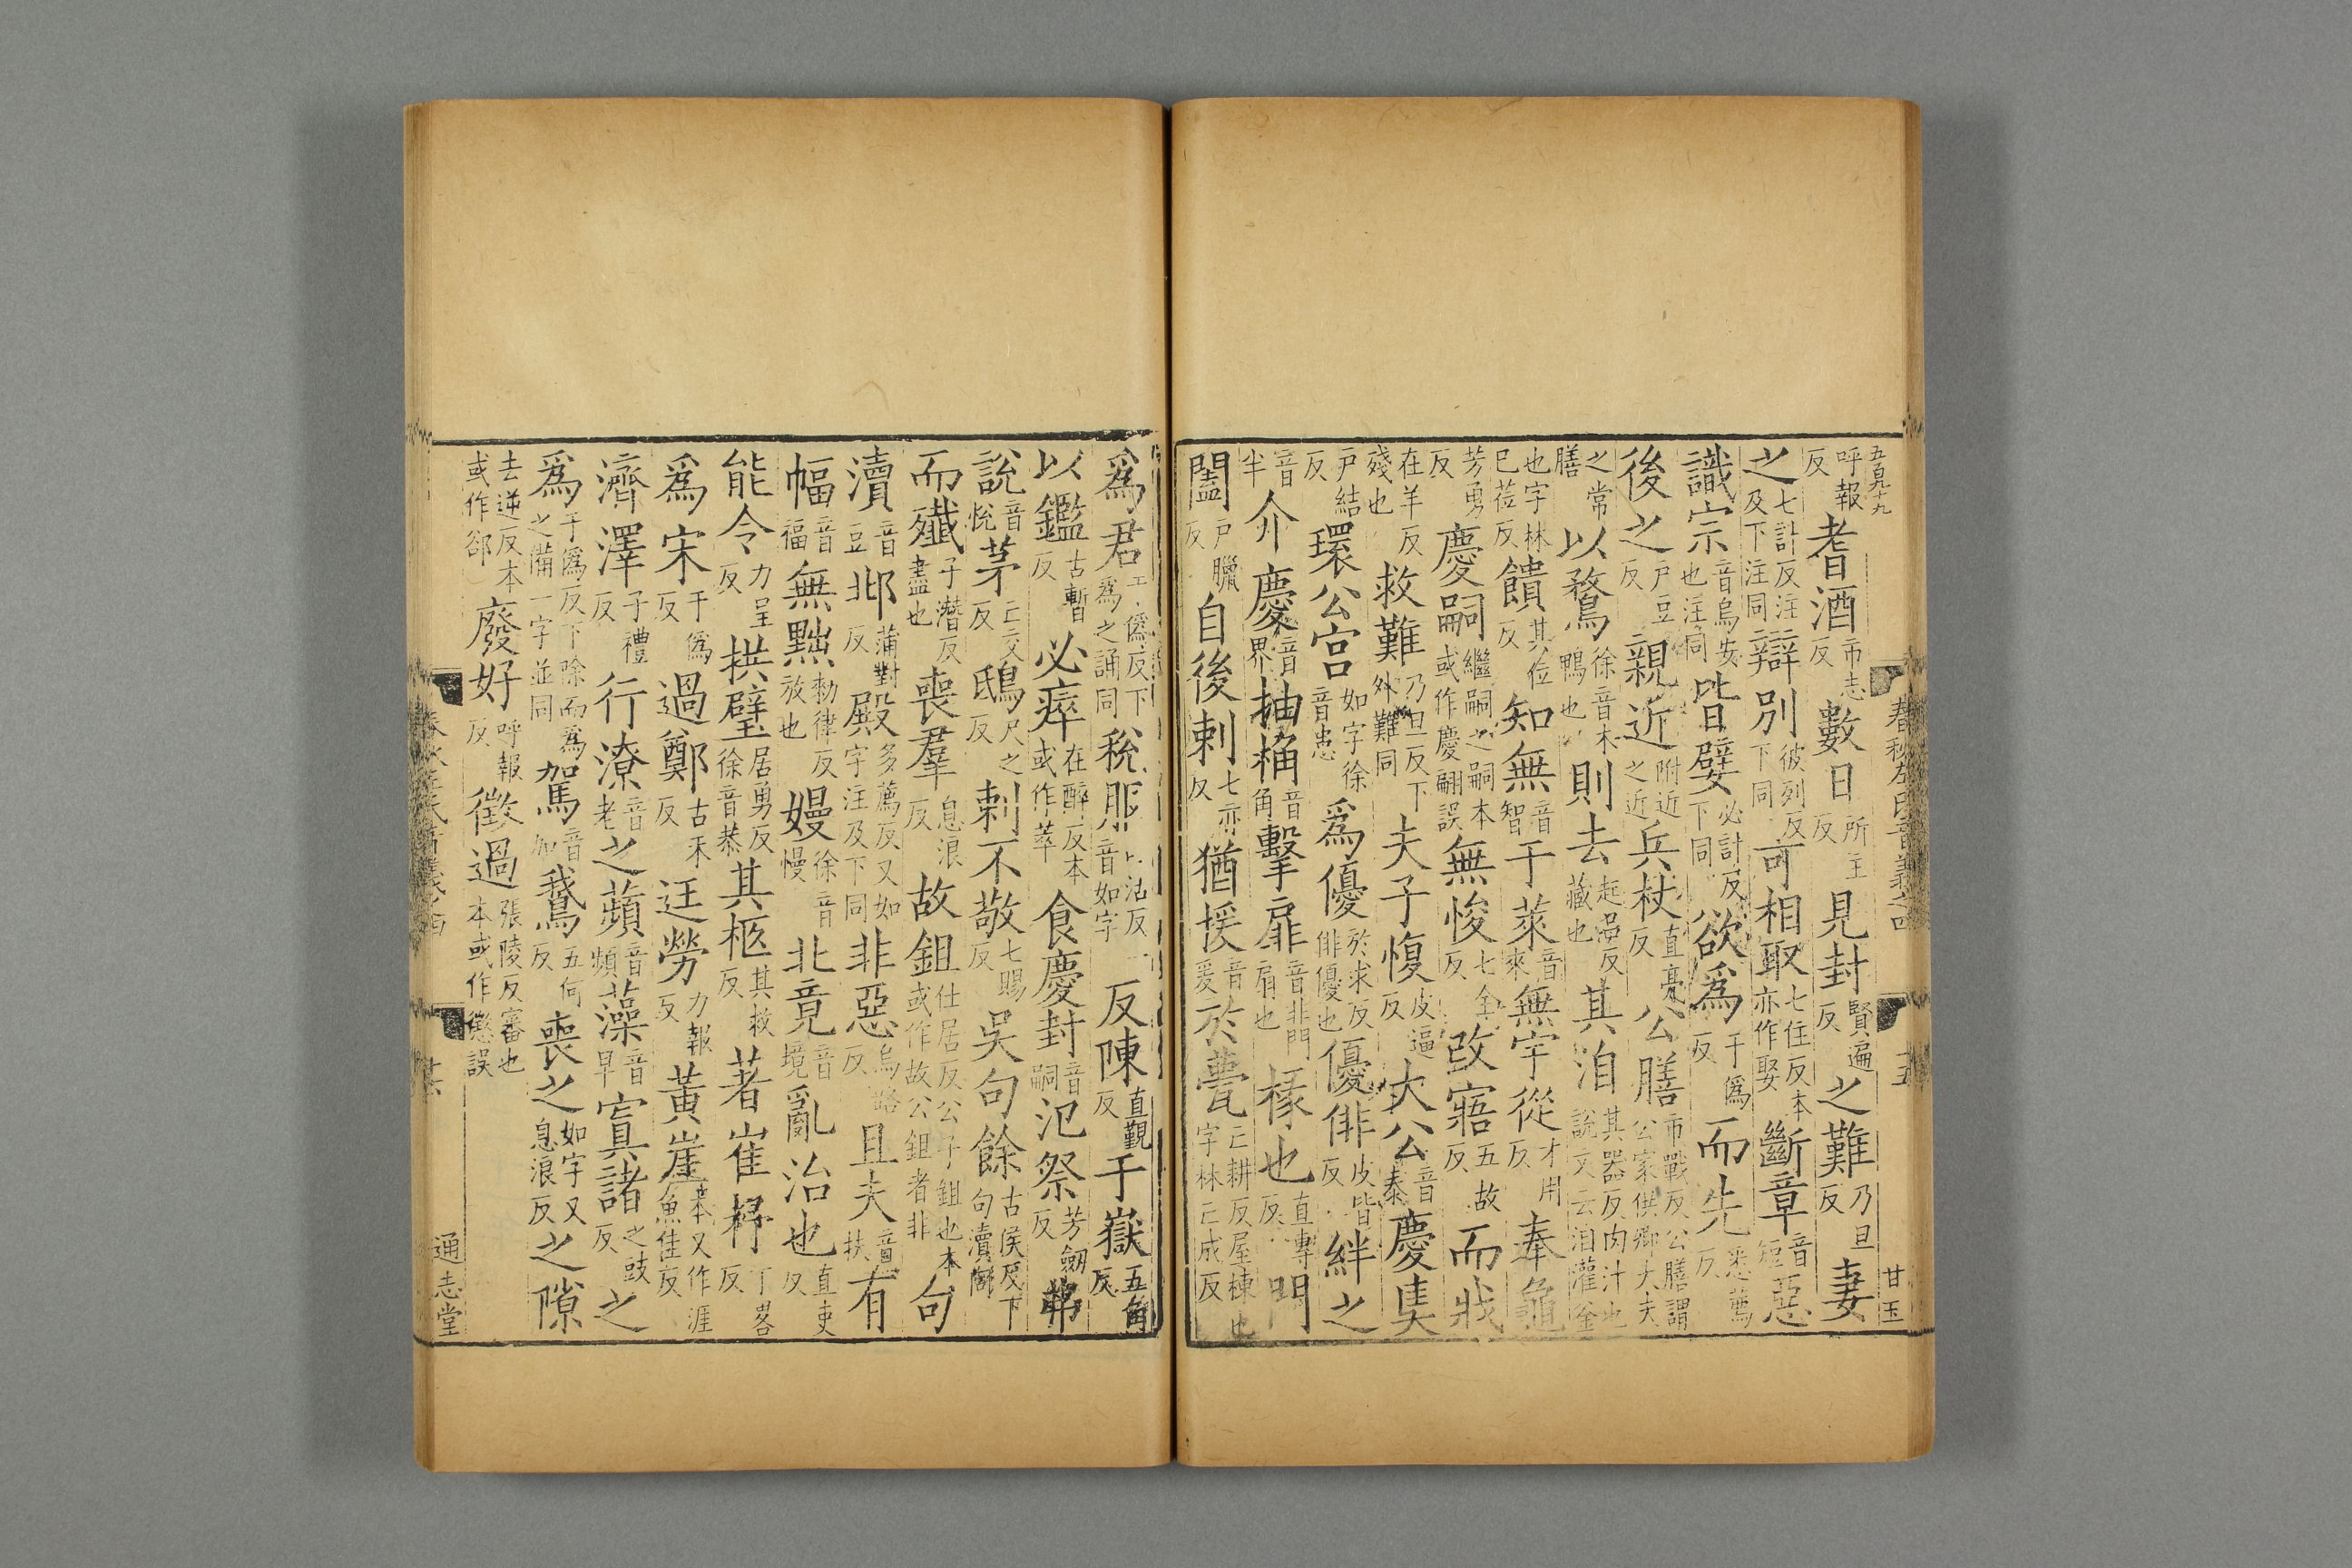 五百九十九
春秋左氏音義之四
十五
甘玉
呼報反耆酒市志反數日所主反見封賢遍反之難乃旦反妻
之七計反注及下注同辯別彼列反下同可相取七住反本亦作娶斷章音短惡
識宗音烏安也注同皆嬖必計反下同欲爲于僞反而先悉薦反
後之戸豆反親近附近之近兵杖直亮反公膳市戰反公膳謂公家供卿大夫
之常膳以鶩徐音木鴨也則去起呂反藏也其洎其器反肉汁也說文云洎灌釜
也字林己莅反饋其位反知無音智于萊音來無宇從才用反奉龜
芳勇反慶嗣繼嗣之嗣本或作慶翩誤無悛七全反改寤五故反而戕
在羊反殘也救難乃旦反下外難同夫子愎皮逼反大公音泰慶㚖
戸結反環公宮如字徐音患爲優於求反俳優也優俳皮皆反絆之
音半介慶音界抽桷音角擊扉音非門扇也椽也直專反門
闔戸臘反自後刺七亦反猶援音爰於甍亡耕反屋棟也字林亡成反
爲君于僞反下爲之誦同稅服吐活反音如字反陳直覲反于嶽五角反弗
以鑑古暫反必瘁在醉反本或作萃食慶封音嗣氾祭芳劒反
說音悅茅亡交反鴟尺之反刺不敬七賜反吳句餘古侯反下句瀆同
而殲子潛反盡也喪羣息浪反故鉏仕居反公子鉏也本或作故公鉏者非句
瀆音豆邶蒲對反殿多薦反又如字注及下同非惡烏路反且夫音扶有
幅音福無黜勑律反放也嫚徐音慢北竟音境亂治也直吏反
能令力呈反拱璧居勇反徐音恭其柩其救反著崔杼丁畧反
爲宋于僞反過鄭古禾反迋勞力報反黃崖本又作涯魚佳反
濟澤子禮反行潦音老之蘋音頻藻音早寘諸之豉反之
爲于僞反下除而爲之備一字並同駕音加鵞五何反喪之如字又息浪反之隙
去逆反本或作郤廢好呼報反徵過張陵反審也本或作懲誤
春秋左氏音義之四
十六
通志堂